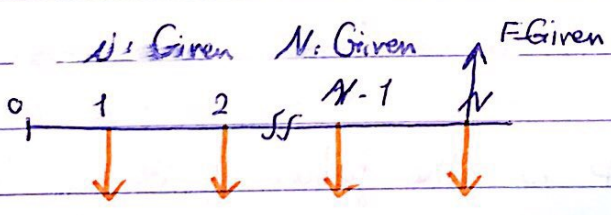 i: Given N: Given F=Given
0 1 2 N-1 N